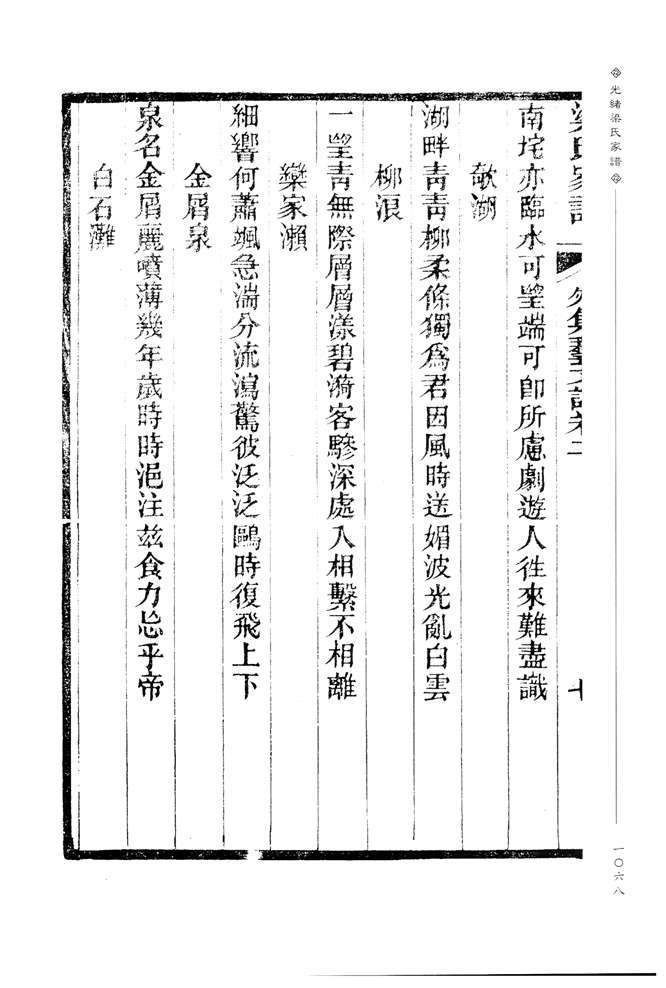 光緒梁氏家譜
一〇六八
梁氏家譜
外集藝文詩卷二
七
南垞亦臨水可望端可卽所慮劇遊人往來難盡識
欹湖
湖畔靑靑柳柔條獨爲君因風時送媚波光亂白雲
柳浪
一望靑無際層層漾碧漪客驂深處入相繫不相離
欒家瀨
細響何蕭颯急湍分流瀉驚彼泛泛鷗時復飛上下
金屑泉
泉名金屑麗噴薄幾年歲時時浥注玆食力忘乎帝
白石灘